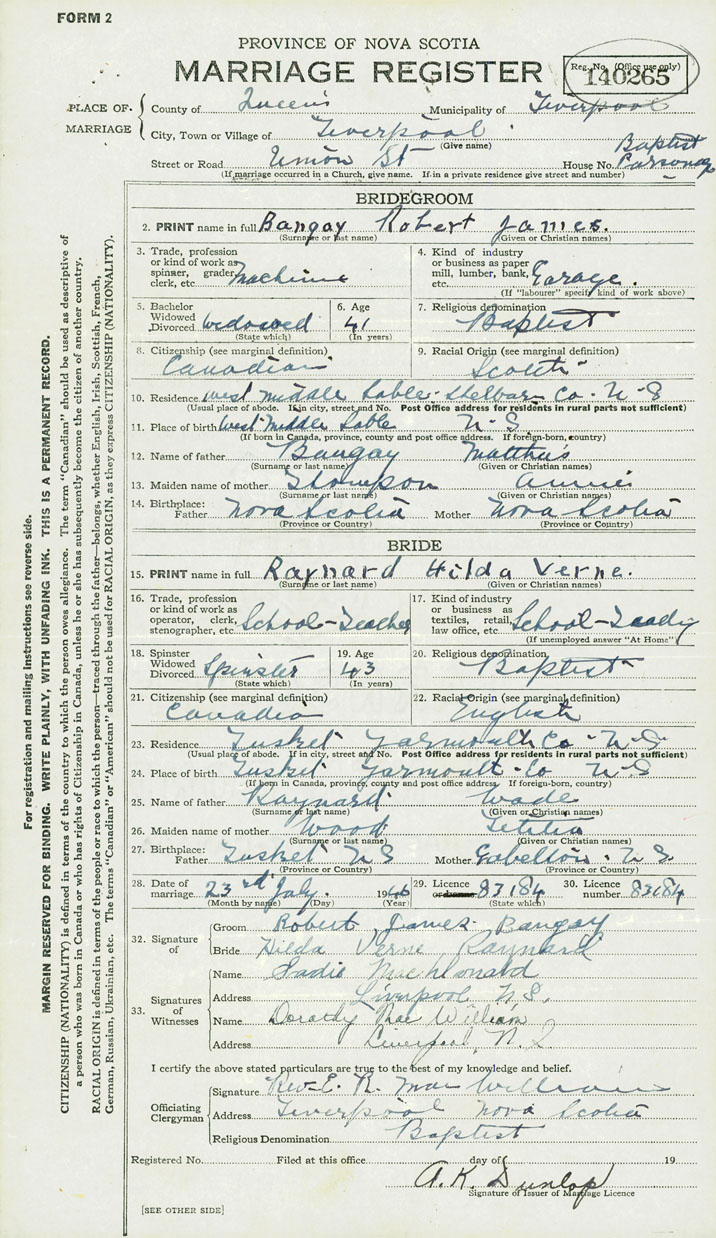 FORM 2
PROVINCE OF NOVA SCOTIA
MARRIAGE REGISTER
Reg. No. (Office use only)
140265
PLACE OF MARRIAGE
County of Queens Municipality of Liverpool
City, Town or Village of Liverpool
(Give name)
Street or Road Union St House No. Baptist Parsonage
(If marriage occurred in a Church, give name. If in a private residence give street and number)
BRIDEGROOM
2. PRINT name in full Bangay Robert James.
(Surname or last name) (Given or Christian names)
3. Trade, profession or kind of work as spinner, grader, clerk, etc.
4. Kind of industry or business as paper mill, lumber, bank, etc. Garage.
(If "labourer" specify kind of work above)
5. Bachelor Widowed Divorced Widowed
(State which)
6. Age 41
(In years)
7. Religious denomination
Baptist
8. Citizenship (see marginal definition)
Canadian
9. Racial Origin (see marginal definition)
Scotch
10. Residence West Middle Sable Shelburn Co. N S
(Usual place of abode. If in city, street and No. Post Office address for residents in rural parts not sufficient)
11. Place of birth West Middle Sable N S
(If born in Canada, province, county and post office address. If foreign-born, country)
12. Name of father Bangay
(Surname or last name) (Given or Christian names)
13. Maiden name of mother Annie
(Surname or last name) (Given or Christian names)
14. Birthplace: Father Nova Scotia Mother Nova Scotia
(Province or Country) (Province or Country)
BRIDE
15. PRINT name in full Raynard Hilda Verne.
(Surname or last name) (Given or Christian names)
16. Trade, profession or kind of work as operator, clerk, stenographer, etc. School-Teacher
17. Kind of industry or business as textiles, retail, law office, etc. School-
(If unemployed answer "At Home")
18. Spinster Widowed Divorced Spinster
(State which)
19. Age 43
(In years)
20. Religious denomination
Baptist
21. Citizenship (see marginal definition)
Canadia
22. Racial Origin (see marginal definition)
English
23. Residence Tusket Yarmouth Co N S
(Usual place of abode. If in city, street and No. Post Office address for residents in rural parts not sufficient)
24. Place of birth Tusket Yarmouth Co N S
(If born in Canada, province, county and post office address. If foreign-born, country)
25. Name of father Raynard Wade
(Surname or last name) (Given or Christian names)
26. Maiden name of mother Wood Letitia
(Surname or last name) (Given or Christian names)
27. Birthplace: Father Tusket N S Mother N S
(Province or Country) (Province or Country)
28. Date of marriage 23rd July. 1946
(Month by name) (Day) (Year)
29. Licence 83184
(State which)
30. Licence number 83184
32. Signature of
Groom Robert James Bangay
Bride Hilda Verne Raynard
33. Signatures of Witnesses
Name Sadie
Address Liverpool N.S.
Name Dorothy Mac William
Address Liverpool, N.S
I certify the above stated particulars are true to the best of my knowledge and belief.
Officiating Clergyman
Signature Rev. E. R. Mac William
Address Liverpool Nova Scotia
Religious Denomination Baptist
Registered No. Filed at this office day of 19
A. K. Dunlop
Signature of Issuer of Marriage Licence
[SEE OTHER SIDE]
For registration and mailing instructions see reverse side.
MARGIN RESERVED FOR BINDING. WRITE PLAINLY, WITH UNFADING INK. THIS IS A PERMANENT RECORD.
CITIZENSHIP (NATIONALITY) is defined in terms of the country to which the person owes allegiance. The term "Canadian" should be used as descriptive of
a person who was born in Canada or who has rights of Citizenship in Canada, unless he or she has subsequently become the citizen of another country.
RACIAL ORIGIN is defined in terms of the people or race to which the person—traced through the father—belongs, whether English, Irish, Scottish, French,
German, Russian, Ukrainian, etc. The terms "Canadian" or "American" should not be used for RACIAL ORIGIN, as they express CITIZENSHIP (NATIONALITY).